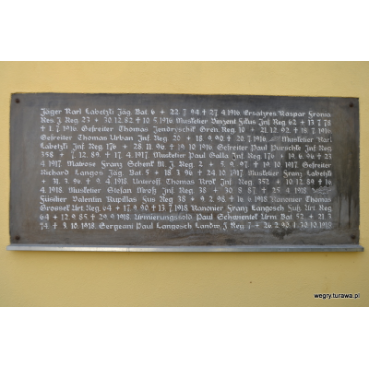 Jäger Karl Labetzki Jäg Bat 6 + 22 7 94 + 27 4 1916 Ersatzres Kaspar
Res J. Reg 23 + 30 12 82 + 10 5 1916 Musketier Vinzent Inf Reg 62 + 13 7 78
+ 1 7 1916 Gefreiter Thomas Gren Reg 10 + 21 12 92 + 18 7 1916
Gefreiter Thomas Urban Inf Reg 20 + 18 9 90 + 20 7 1916 Musketier Karl
Labetzki Inf Reg 176 + 28 11 96 + 19 10 1916 Gefreiter Paul Inf Reg
358 + 7 12 89 + 17 4 1917 Musketier Paul Galla Inf Reg 176 + 19 6 96 + 23
4 1917 Matrose Franz Schenk M. J. Reg 2 + 5 9 97 + 19 10 1917 Gefreiter
Richard Langos Jäg Bat 5 + 18 3 96 + 24 10 1917 Musketier Franz Labetzki
+ 11 3 96 + 9 4 1918 Unteroff Thomas Inf Reg 352 + 10 12 89 + 16
4 1918 Musketier Stefan Inf Reg 38 + 9 8 87 + 25 4 1918
Füsilier Valentin Kupillas Füs Reg 38 + 9 2 98 + 16 6 1918 Kanonier Thomas
Art Reg 64 + 17 9 90 + 13 7 1918 Kanonier Franz Langosch Fuß Art Reg
64 + 12 9 85 + 29 9 1918 Armierungssold Paul Schwientek Arm Bat 52 + 21 3
74 + 3 10 1918 Sergeant Paul Langosch Landw J Reg 7 + 26 2 80 + 30 10 1918
wegry.turawa.pl